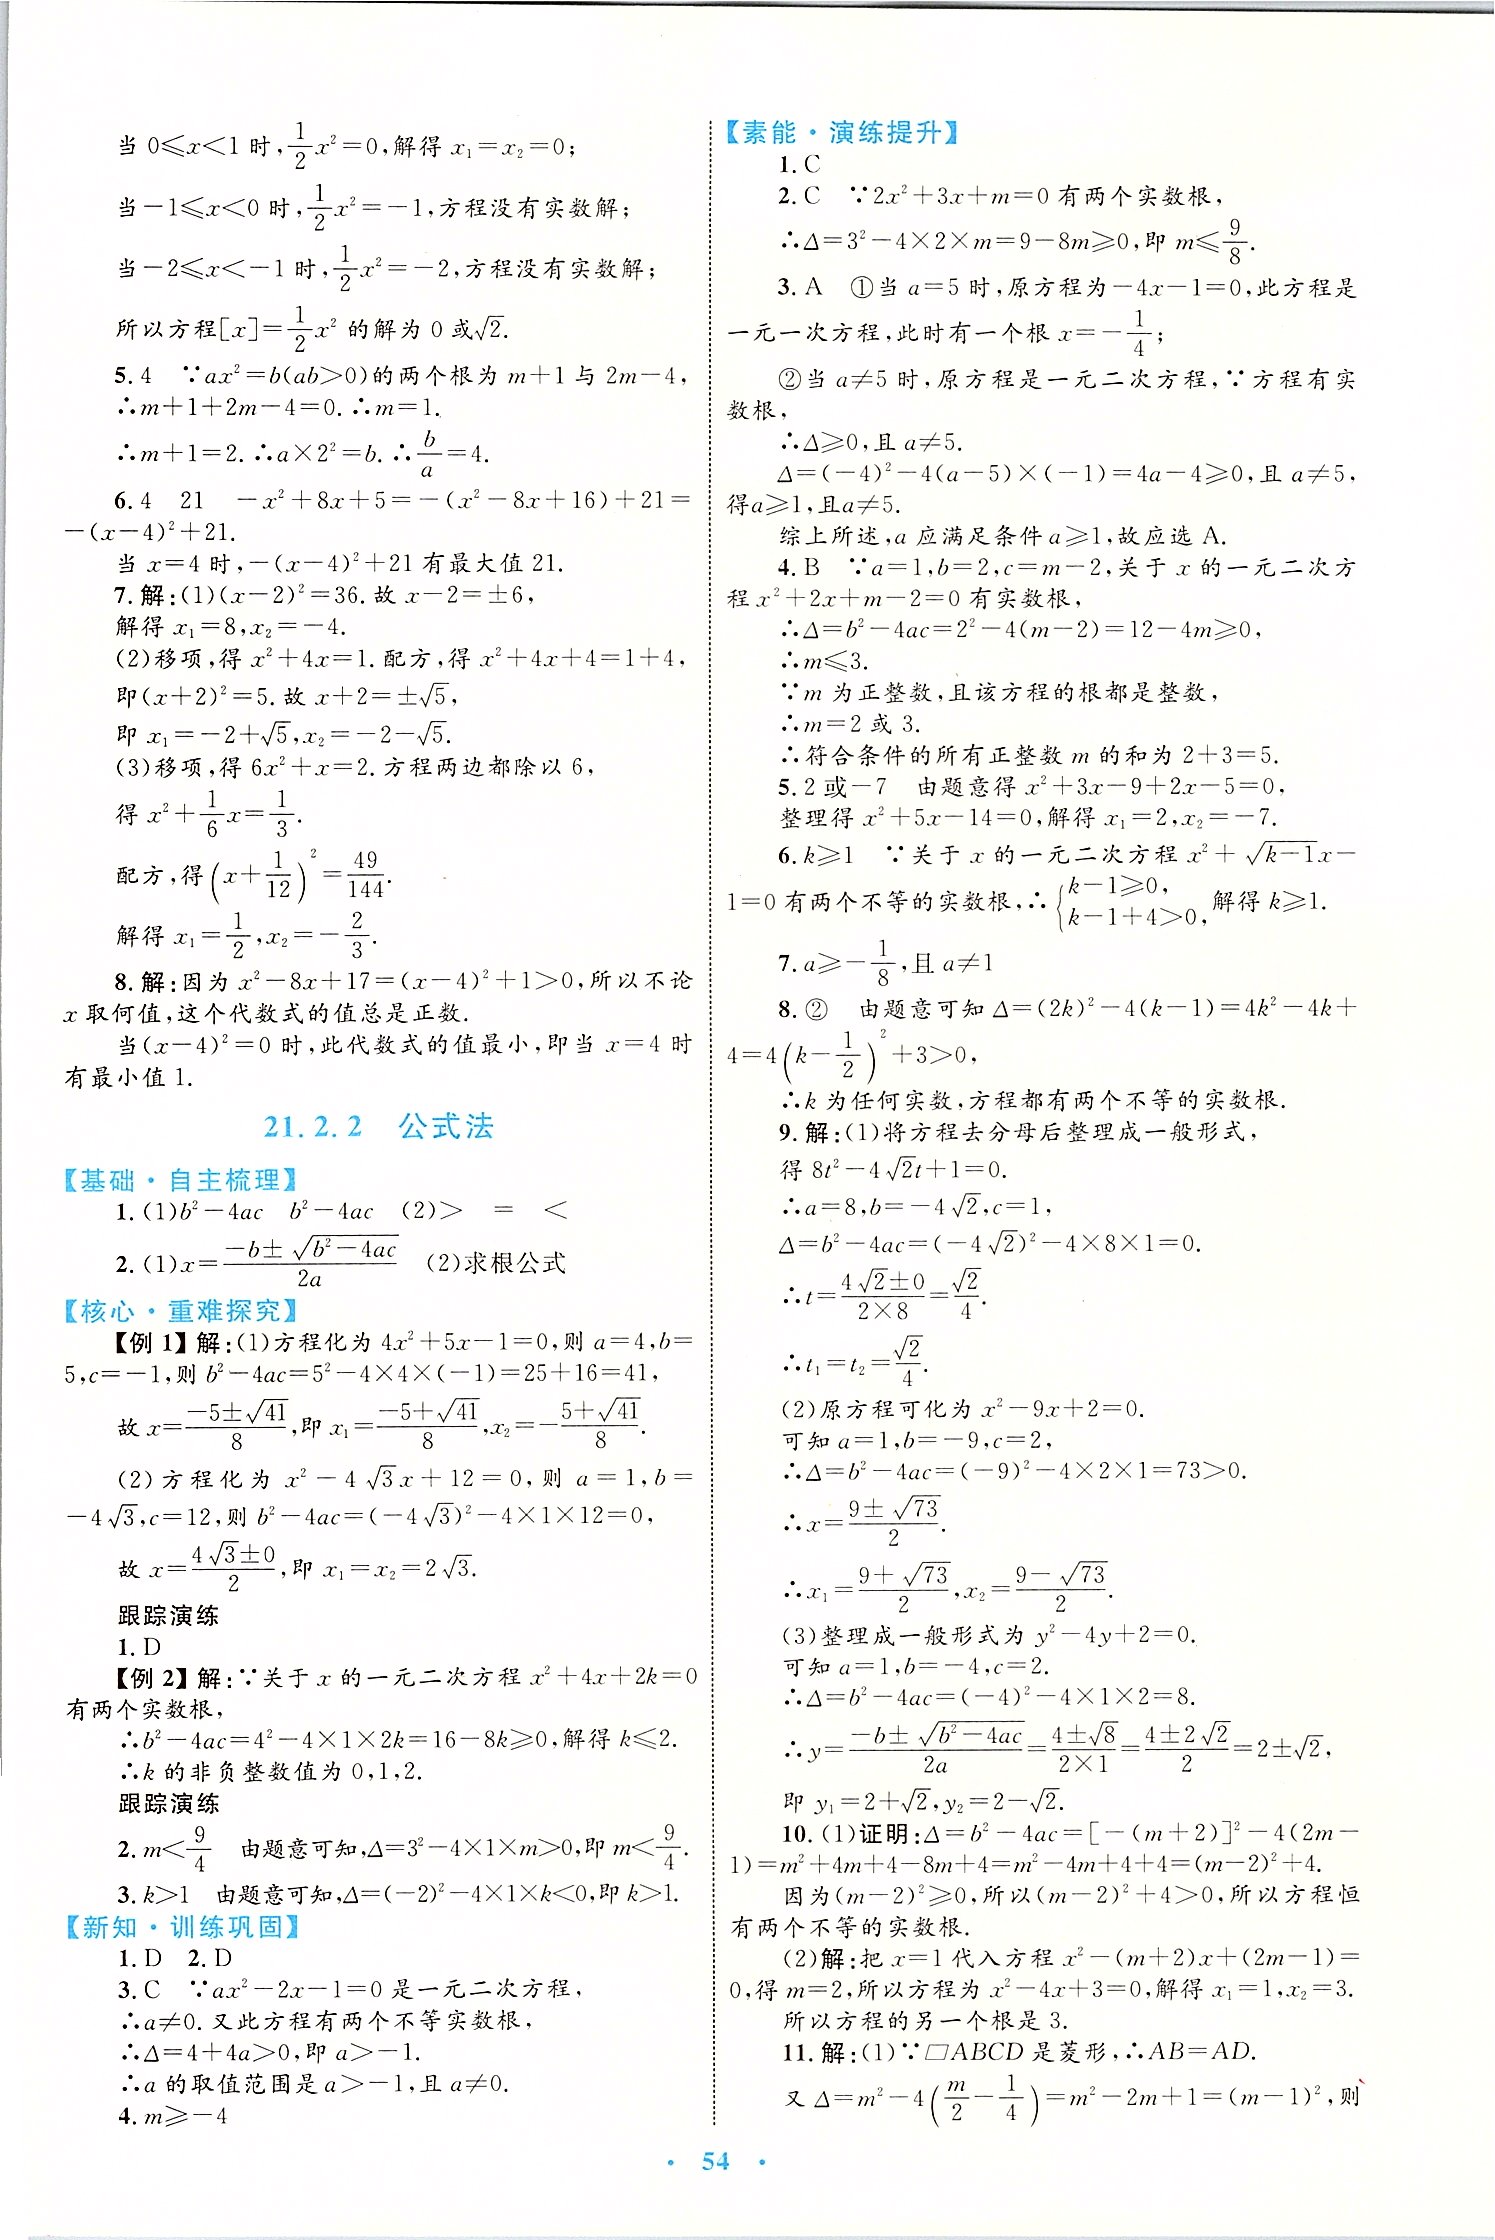 当 0≤x<1 时,1/2x²=0,解得 x₁=x₂=0;
当-1≤x<0 时,1/2x²=-1,方程没有实数解;
当-2≤x<-1 时,1/2x²=-2,方程没有实数解;
所以方程[x]=1/2x² 的解为 0 或√2.
5.4 ∵ax²=b(ab>0)的两个根为 m+1 与 2m-4,
∴m+1+2m-4=0.∴m=1.
∴m+1=2.∴a×2²=b.∴b/a=4.
6.4 21 -x²+8x+5=-(x²-8x+16)+21=
-(x-4)²+21.
当 x=4 时,-(x-4)²+21 有最大值 21.
7.解:(1)(x-2)²=36.故 x-2=±6,
解得 x₁=8,x₂=-4.
(2)移项,得 x²+4x=1.配方,得 x²+4x+4=1+4,
即(x+2)²=5.故 x+2=±√5,
即 x₁=-2+√5,x₂=-2-√5.
(3)移项,得 6x²+x=2.方程两边都除以 6,
得 x²+1/6x=1/3.
配方,得(x+1/12)²=49/144.
解得 x₁=1/2,x₂=-2/3.
8.解:因为 x²-8x+17=(x-4)²+1>0,所以不论
x 取何值,这个代数式的值总是正数.
当(x-4)²=0 时,此代数式的值最小,即当 x=4 时
有最小值 1.
21.2.2 公式法
【基础·自主梳理】
1.(1)b²-4ac b²-4ac (2)> = <
2.(1)x=(-b±√(b²-4ac))/2a (2)求根公式
【核心·重难探究】
【例 1】解:(1)方程化为 4x²+5x-1=0,则 a=4,b=
5,c=-1,则 b²-4ac=5²-4×4×(-1)=25+16=41,
故 x=(-5±√41)/8,即 x₁=(-5+√41)/8,x₂=-(5+√41)/8.
(2)方程化为 x²-4√3x+12=0,则 a=1,b=
-4√3,c=12,则 b²-4ac=(-4√3)²-4×1×12=0,
故 x=(4√3±0)/2,即 x₁=x₂=2√3.
跟踪演练
1.D
【例 2】解:∵关于 x 的一元二次方程 x²+4x+2k=0
有两个实数根,
∴b²-4ac=4²-4×1×2k=16-8k≥0,解得 k≤2.
∴k 的非负整数值为 0,1,2.
跟踪演练
2.m<9/4 由题意可知,Δ=3²-4×1×m>0,即 m<9/4.
3.k>1 由题意可知,Δ=(-2)²-4×1×k<0,即 k>1.
【新知·训练巩固】
1.D 2.D
3.C ∵ax²-2x-1=0 是一元二次方程,
∴a≠0.又此方程有两个不等实数根,
∴Δ=4+4a>0,即 a>-1.
∴a 的取值范围是 a>-1,且 a≠0.
4.m≥-4
【素能·演练提升】
1.C
2.C ∵2x²+3x+m=0 有两个实数根,
∴Δ=3²-4×2×m=9-8m≥0,即 m≤9/8.
3.A ①当 a=5 时,原方程为-4x-1=0,此方程是
一元一次方程,此时有一个根 x=-1/4;
②当 a≠5 时,原方程是一元二次方程,∵方程有实
数根,
∴Δ≥0,且 a≠5.
Δ=(-4)²-4(a-5)×(-1)=4a-4≥0,且 a≠5,
得a≥1,且a≠5.
综上所述,a 应满足条件 a≥1,故应选 A.
4.B ∵a=1,b=2,c=m-2,关于 x 的一元二次方
程 x²+2x+m-2=0 有实数根,
∴Δ=b²-4ac=2²-4(m-2)=12-4m≥0,
∴m≤3.
∵m 为正整数,且该方程的根都是整数,
∴m=2 或 3.
∴符合条件的所有正整数 m 的和为 2+3=5.
5.2 或-7 由题意得 x²+3x-9+2x-5=0,
整理得 x²+5x-14=0,解得 x₁=2,x₂=-7.
6.k≥1 ∵关于 x 的一元二次方程 x²+√(k-1)x-
1=0 有两个不等的实数根,∴{k-1≥0, k-1+4>0, 解得 k≥1.
7.a≥-1/8,且 a≠1
8.② 由题意可知 Δ=(2k)²-4(k-1)=4k²-4k+
4=4(k-1/2)²+3>0,
∴k 为任何实数,方程都有两个不等的实数根.
9.解:(1)将方程去分母后整理成一般形式,
得 8t²-4√2t+1=0.
∴a=8,b=-4√2,c=1,
Δ=b²-4ac=(-4√2)²-4×8×1=0.
∴t=(4√2±0)/(2×8)=√2/4.
∴t₁=t₂=√2/4.
(2)原方程可化为 x²-9x+2=0.
可知 a=1,b=-9,c=2,
∴Δ=b²-4ac=(-9)²-4×2×1=73>0.
∴x=(9±√73)/2.
∴x₁=(9+√73)/2,x₂=(9-√73)/2.
(3)整理成一般形式为 y²-4y+2=0.
可知 a=1,b=-4,c=2.
∴Δ=b²-4ac=(-4)²-4×1×2=8.
∴y=(-b±√(b²-4ac))/2a=(4±√8)/(2×1)=(4±2√2)/2=2±√2,
即 y₁=2+√2,y₂=2-√2.
10.(1)证明:Δ=b²-4ac=[-(m+2)]²-4(2m-
1)=m²+4m+4-8m+4=m²-4m+4+4=(m-2)²+4.
因为(m-2)²≥0,所以(m-2)²+4>0,所以方程恒
有两个不等的实数根.
(2)解:把 x=1 代入方程 x²-(m+2)x+(2m-1)=
0,得 m=2,所以方程为 x²-4x+3=0,解得 x₁=1,x₂=3.
所以方程的另一个根是 3.
11.解:(1)∵□ABCD 是菱形,∴AB=AD.
又 Δ=m²-4(m/2-1/4)=m²-2m+1=(m-1)²,则
· 54 ·